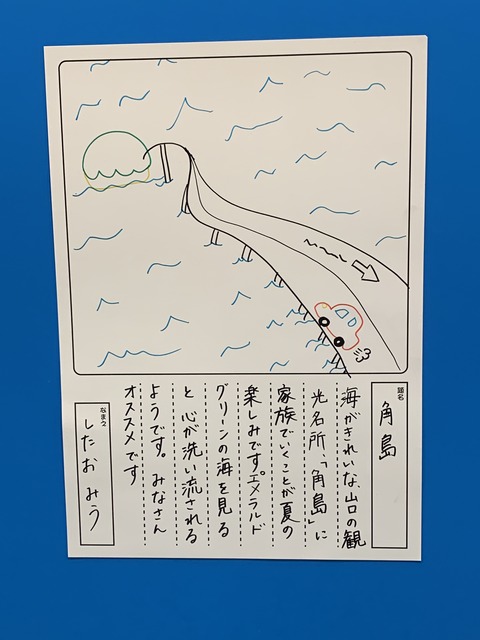 題名
角島
海がきれいな、山口の観
光名所、「角島」に
家族でいくことが夏の
楽しみです。エメラルド
グリーンの海を見る
と心が洗い流される
ようです。みなさん
オススメです
なまえ
したお みう